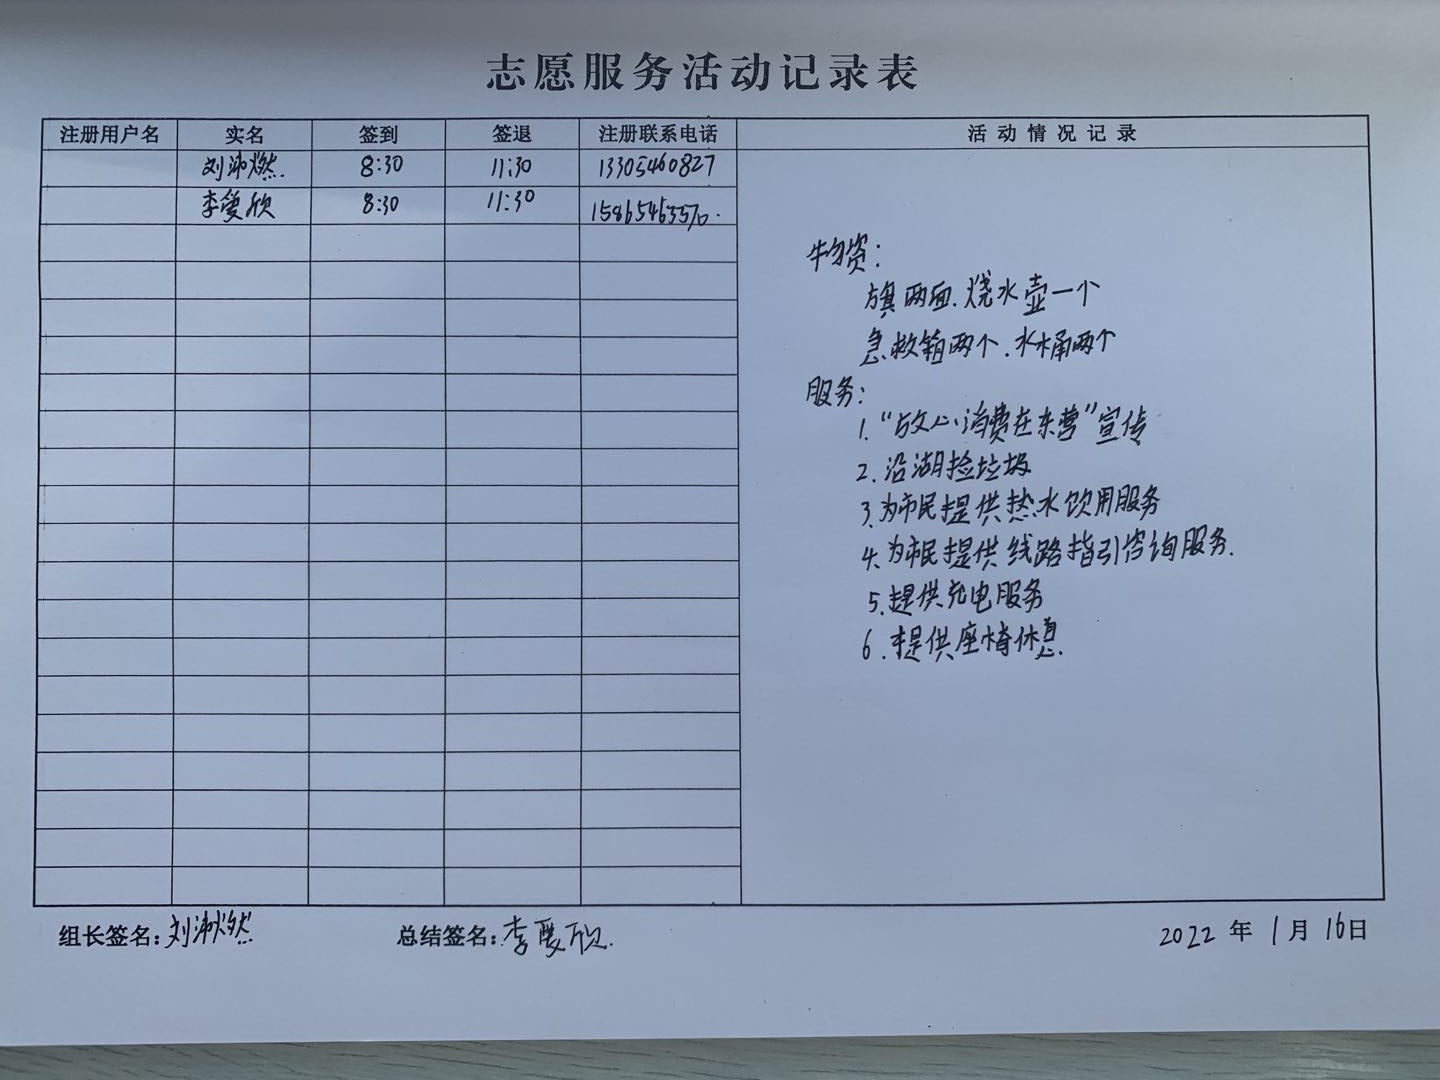 志愿服务活动记录表
注册用户名 实名 签到 签退 注册联系电话 活动情况记录
刘沛燃 8:30 11:30 13305460827
李爱欣 8:30 11:30 15865463570
物资:
旗两面.烧水壶一个
急救箱两个.水桶两个
服务:
1."放心消费在东营"宣传
2.沿湖捡垃圾
3.为市民提供热水饮用服务
4.为市民提供线路指引咨询服务.
5.提供充电服务
6.提供座椅休息.
组长签名:刘沛燃 总结签名:李爱欣. 2022年1月16日